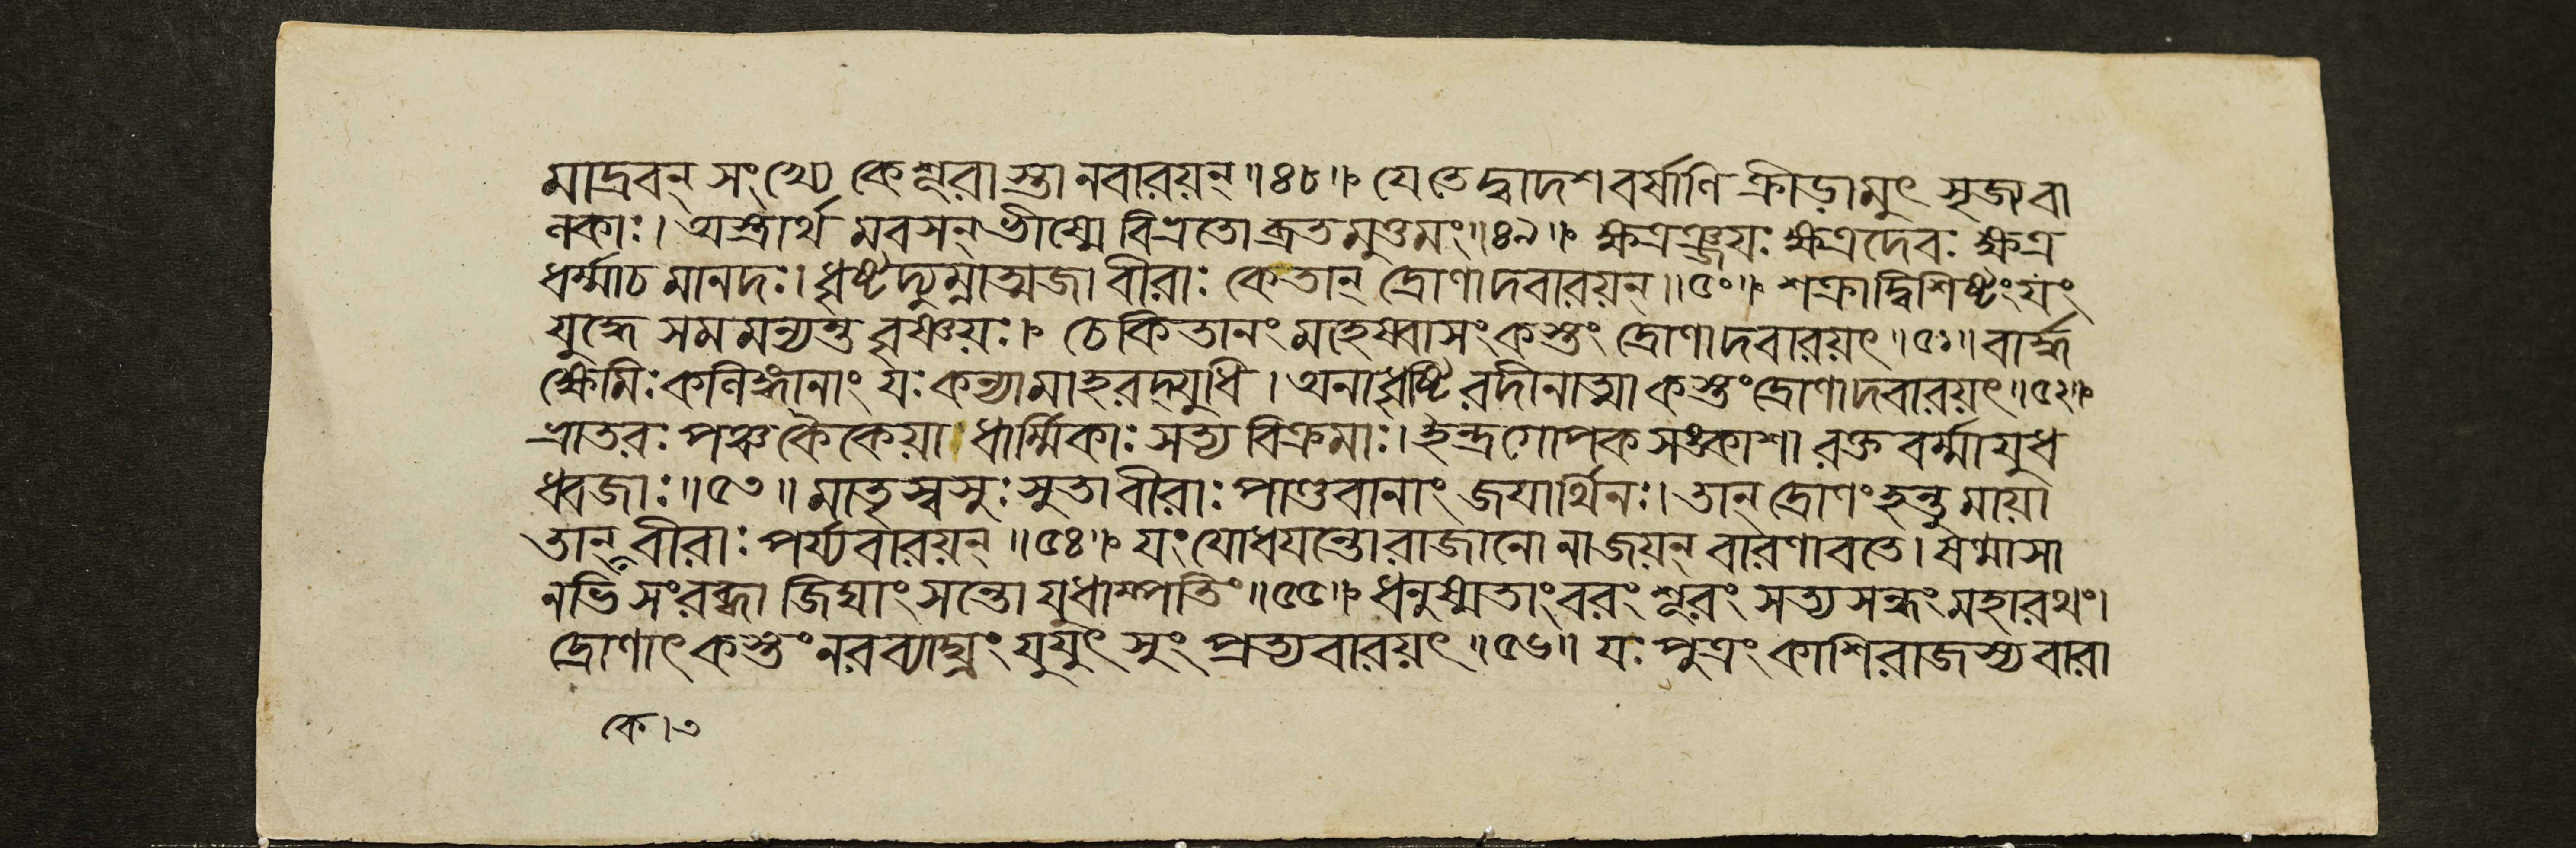 মাদ্রবন্ সংখ্যে কেশূরাস্তানবারয়ন্॥৪৮॥ যেতেদ্বাদশবর্ষাণি ক্রীড়ামুৎ সৃজ্যবা
নকাঃ। অস্ত্রার্থ মবসন্ভীষ্মে বিভ্রতো ব্রতমুত্তমং॥৪৯॥ ক্ষত্রঞ্জয়ঃ ক্ষত্রদেবঃ ক্ষত্র
ধর্ম্মাচ মানদঃ। ধৃষ্টদ্যুম্নাত্মজা বীরাঃ কেতান্ দ্রোণাদবারয়ন্॥৫০॥ শক্রাদ্বিশিষ্টংযং
যুদ্ধে সমমন্যন্ত বৃষ্ণয়ঃ। চেকিতানং মহেষ্বাসং কস্তং দ্রোণাদবারয়ৎ॥৫১॥ বার্দ্ধ
ক্ষেমিঃ কলিঙ্গানাং যঃ কন্যামাহরদ্যুধি। অনাধৃষ্টি রদীনাত্মা কস্তংদ্রোণাদবারয়ৎ॥৫২॥
ভ্রাতরঃ পঞ্চ কৈকেয়া ধার্ম্মিকাঃ সত্য বিক্রমাঃ। ইন্দ্রগোপক সঙ্কাশা রক্ত বর্ম্মাযুধ
ধ্বজাঃ॥৫৩॥ মাতৃ স্বসুঃ সুতা বীরাঃ পাণ্ডবানাং জয়ার্থিনঃ। তান্ দ্রোণং হন্তু মায়া
তান্ বীরাঃ পর্য্যবারয়ন্॥৫৪॥ যং যোধয়ন্তো রাজানো নাজয়ন্ বারণাবতে। ষণ্মাসা
নভি সংরব্ধা জিঘাং সন্তো যুধাম্পতিং॥৫৫॥ ধনুষ্মতাংবরং শূরং সত্য সন্ধং মহারথং।
দ্রোণাৎ কস্তং নরব্যাঘ্রং যুযুৎ সুং প্রত্যবারয়ৎ॥৫৬॥ যঃ পুত্রং কাশিরাজস্য বারা
কে।৩